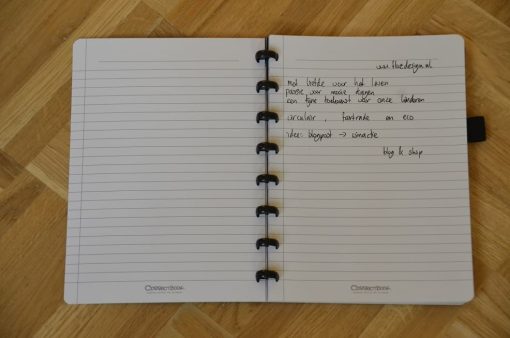 www.fluzdesign.nl
met liefde voor het leven
passie voor mooie dingen
een fijne toekomst voor onze kinderen
circulair, fairtrade en eco
idee: blogpost → winactie
blog & shop
CorrectBook
CorrectBook